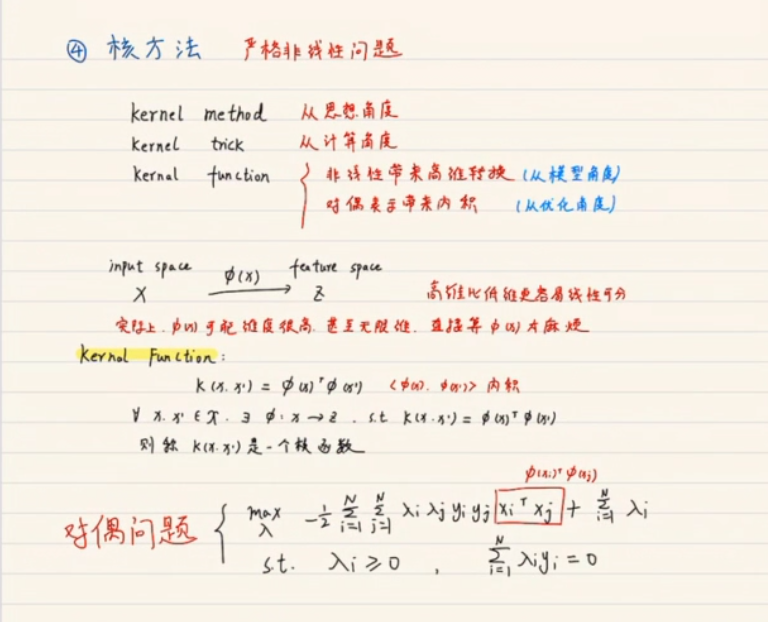 ④ 核方法 严格非线性问题
kernel method 从思想角度
kernel trick 从计算角度
kernal function { 非线性带来高维转换 (从模型角度)
对偶表示带来内积 (从优化角度)
input space ϕ(x) feature space
X ⟶ Z 高维比低维更容易线性可分
实际上, ϕ(x) 可能维度很高, 甚至无限维, 直接算 ϕ(x) 太麻烦
Kernal Function:
K(x, x') = ϕ(x)ᵀϕ(x') <ϕ(x), ϕ(x')> 内积
∀ x, x' ∈ X, ∃ ϕ: x → z, s.t. K(x, x') = ϕ(x)ᵀϕ(x')
则称 K(x, x') 是一个核函数
ϕ(xi)ᵀϕ(xj)
对偶问题 { max λ -1/2 Σ_{i=1}^{N} Σ_{j=1}^{N} λi λj yi yj xiᵀxj + Σ_{i=1}^{N} λi
s.t. λi ≥ 0 , Σ_{i=1}^{N} λiyi = 0